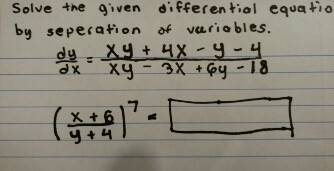 Solve the given differential equatio
by seperation of variables.
dy/dx = xy + 4x - y - 4 / xy - 3x + 6y - 18
(x + 6 / y + 4)^7 =